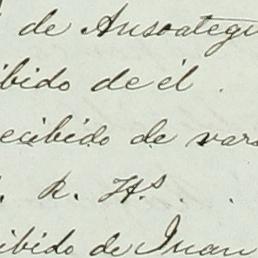 de Ansoategui
ibido de él .
ecibido de vars
. R. H.s . .
ibido de Juan